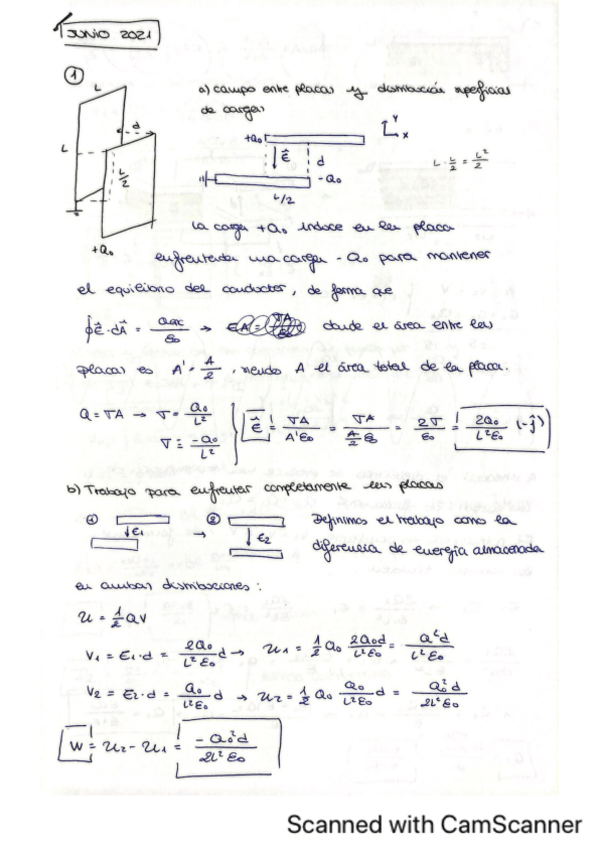 JUNIO 2021
① a) campo entre placas y distribución superficial
de cargas
L
L
d
L/2
+Q₀
+Q₀
E⃗
d
-Q₀
L/2
y
x
L · L/2 = L²/2
La carga +Q₀ induce en la placa
enfrentada una carga -Q₀ para mantener
el equilibrio del conductor, de forma que
∮E⃗·dA⃗ = Qenc/ε₀ → donde el área entre las
placas es A' = A/2, siendo A el área total de la placa.
Q = σA → σ = Q₀/L²
σ = -Q₀/L²
E⃗ = σA/A'ε₀ = σA/(A/2 ε₀) = 2σ/ε₀ = 2Q₀/L²ε₀ (-ĵ)
b) Trabajo para enfrentar completamente las placas
① ↓E₁ → ② ↓E₂ Definimos el trabajo como la
diferencia de energía almacenada
en ambas distribuciones:
U = 1/2 QV
V₁ = E₁·d = 2Q₀/L²ε₀ d → U₁ = 1/2 Q₀ 2Q₀d/L²ε₀ = Q²d/L²ε₀
V₂ = E₂·d = Q₀/L²ε₀ d → U₂ = 1/2 Q₀ Q₀/L²ε₀ d = Q₀²d/2L²ε₀
W = U₂ - U₁ = -Q₀²d/2L²ε₀
Scanned with CamScanner